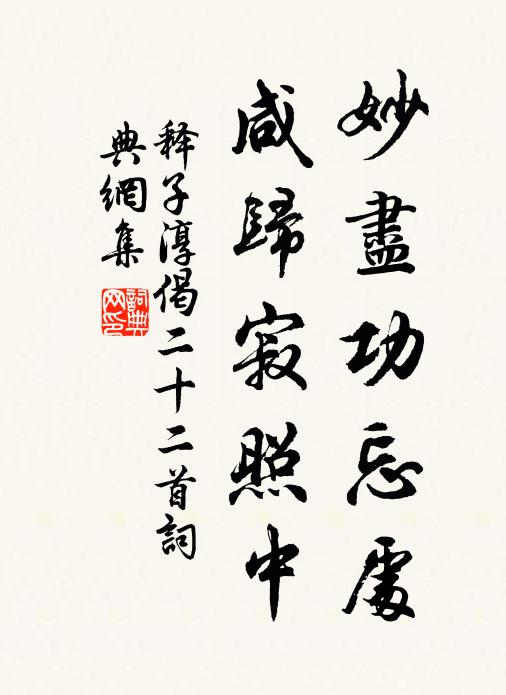 妙盡功忘處
咸歸寂照中
释子淳偈二十二首詞
典網集
詞典
网印